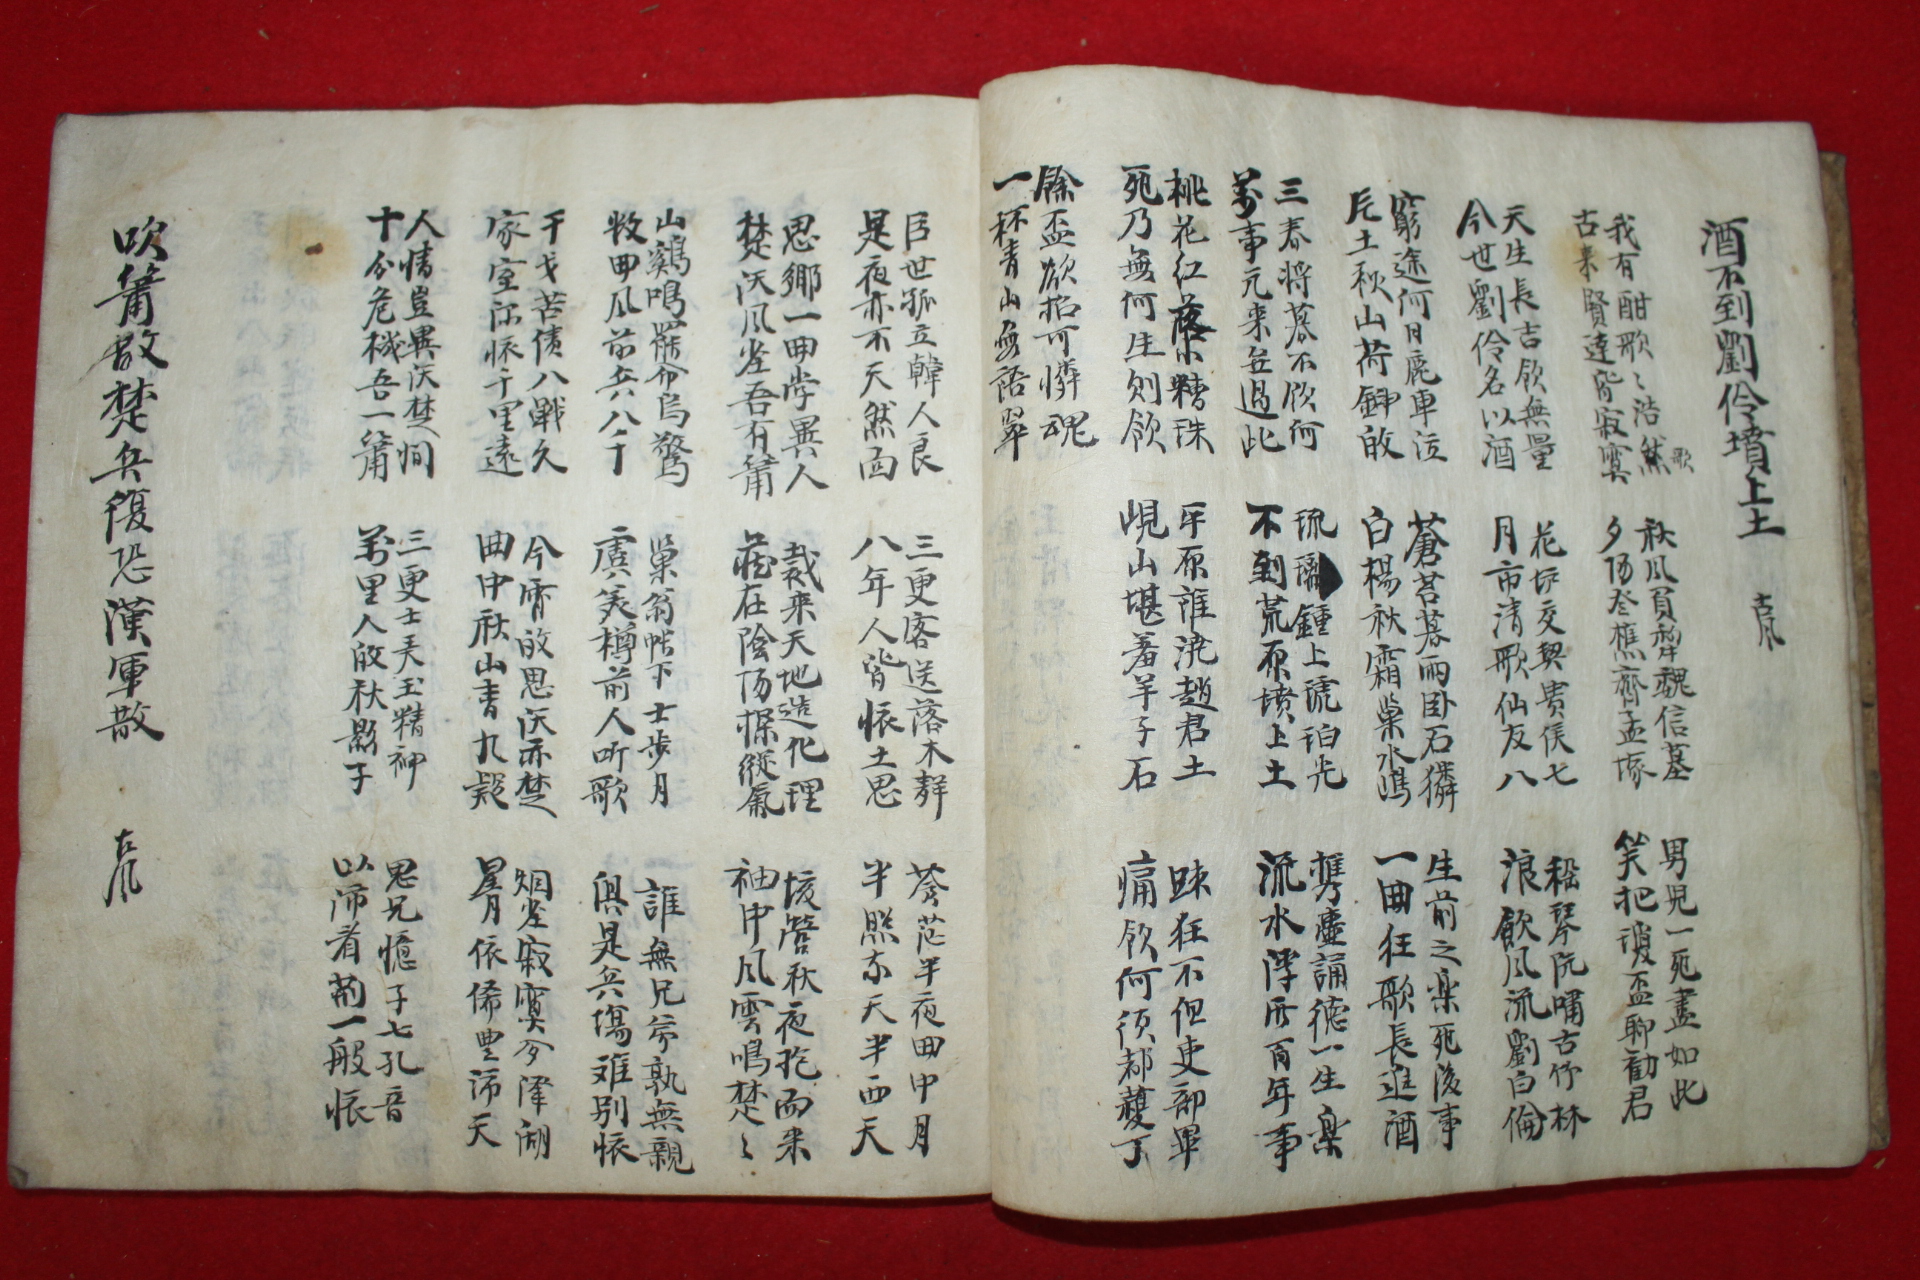 酒不到劉伶墳上土 古風
我有酣歌〻浩然歌
古來賢達皆寂寞
秋風負 魏信墓
夕陽登樵齊孟塚
男兒一死盡如此
笑把瓊盃聊勸君
天生長吉飮無量
今世劉伶名以酒
花坊交契貴侯七
月市清歌仙友八
嵇琴阮嘯古竹林
浪飮風流劉白倫
窮途何日鹿車泣
片土秋山荷鍤
蒼苔暮雨卧石獜
白楊秋霜巢水鴻
生前之楽死後事
一曲狂歌長進酒
三春將暮不飮何
萬事元來無過此
琉璃鍾上琥珀光
不到荒原墳上土
携壺誦德一生楽
流水浮所百年事
桃花紅落小糟珠
死乃無何生則飮
平原誰澆趙君土
峴山堪羞羊子石
踈狂不但吏部畢
痛飮何須都護丁
餘盃欲招可憐魂
一杯青山無語翠
臣世孤立韓人良
是夜亦不天然雨
三更客送落木聲
八年人皆悵土思
蒼茫半夜曲中月
半照東天半西天
思鄕一曲学異人
楚漢風塵吾有簫
裁來天地造化理
藏在陰陽探縱氣
垓營秋夜抱而来
袖中風雲鳴楚〻
山鷄鳴罷 烏驚
牧曲風前兵八千
巢翁帖下士步月
虞美樽前人听歌
誰無兄弟孰無親
俱是兵塲难別悵
干戈苦債八戰久
家室深悵千里遠
今宵的思漢亦楚
曲中秋山青九疑
烟塵寂寞今澤湖
星月依俙豊沛天
人情豈異漢楚間
十分危機吾一簫
三更士 玉精神
萬里人 秋影子
思兄憶子七孔音
以沛看荊一般悵
吹簫散楚兵復恐漢軍散 古風